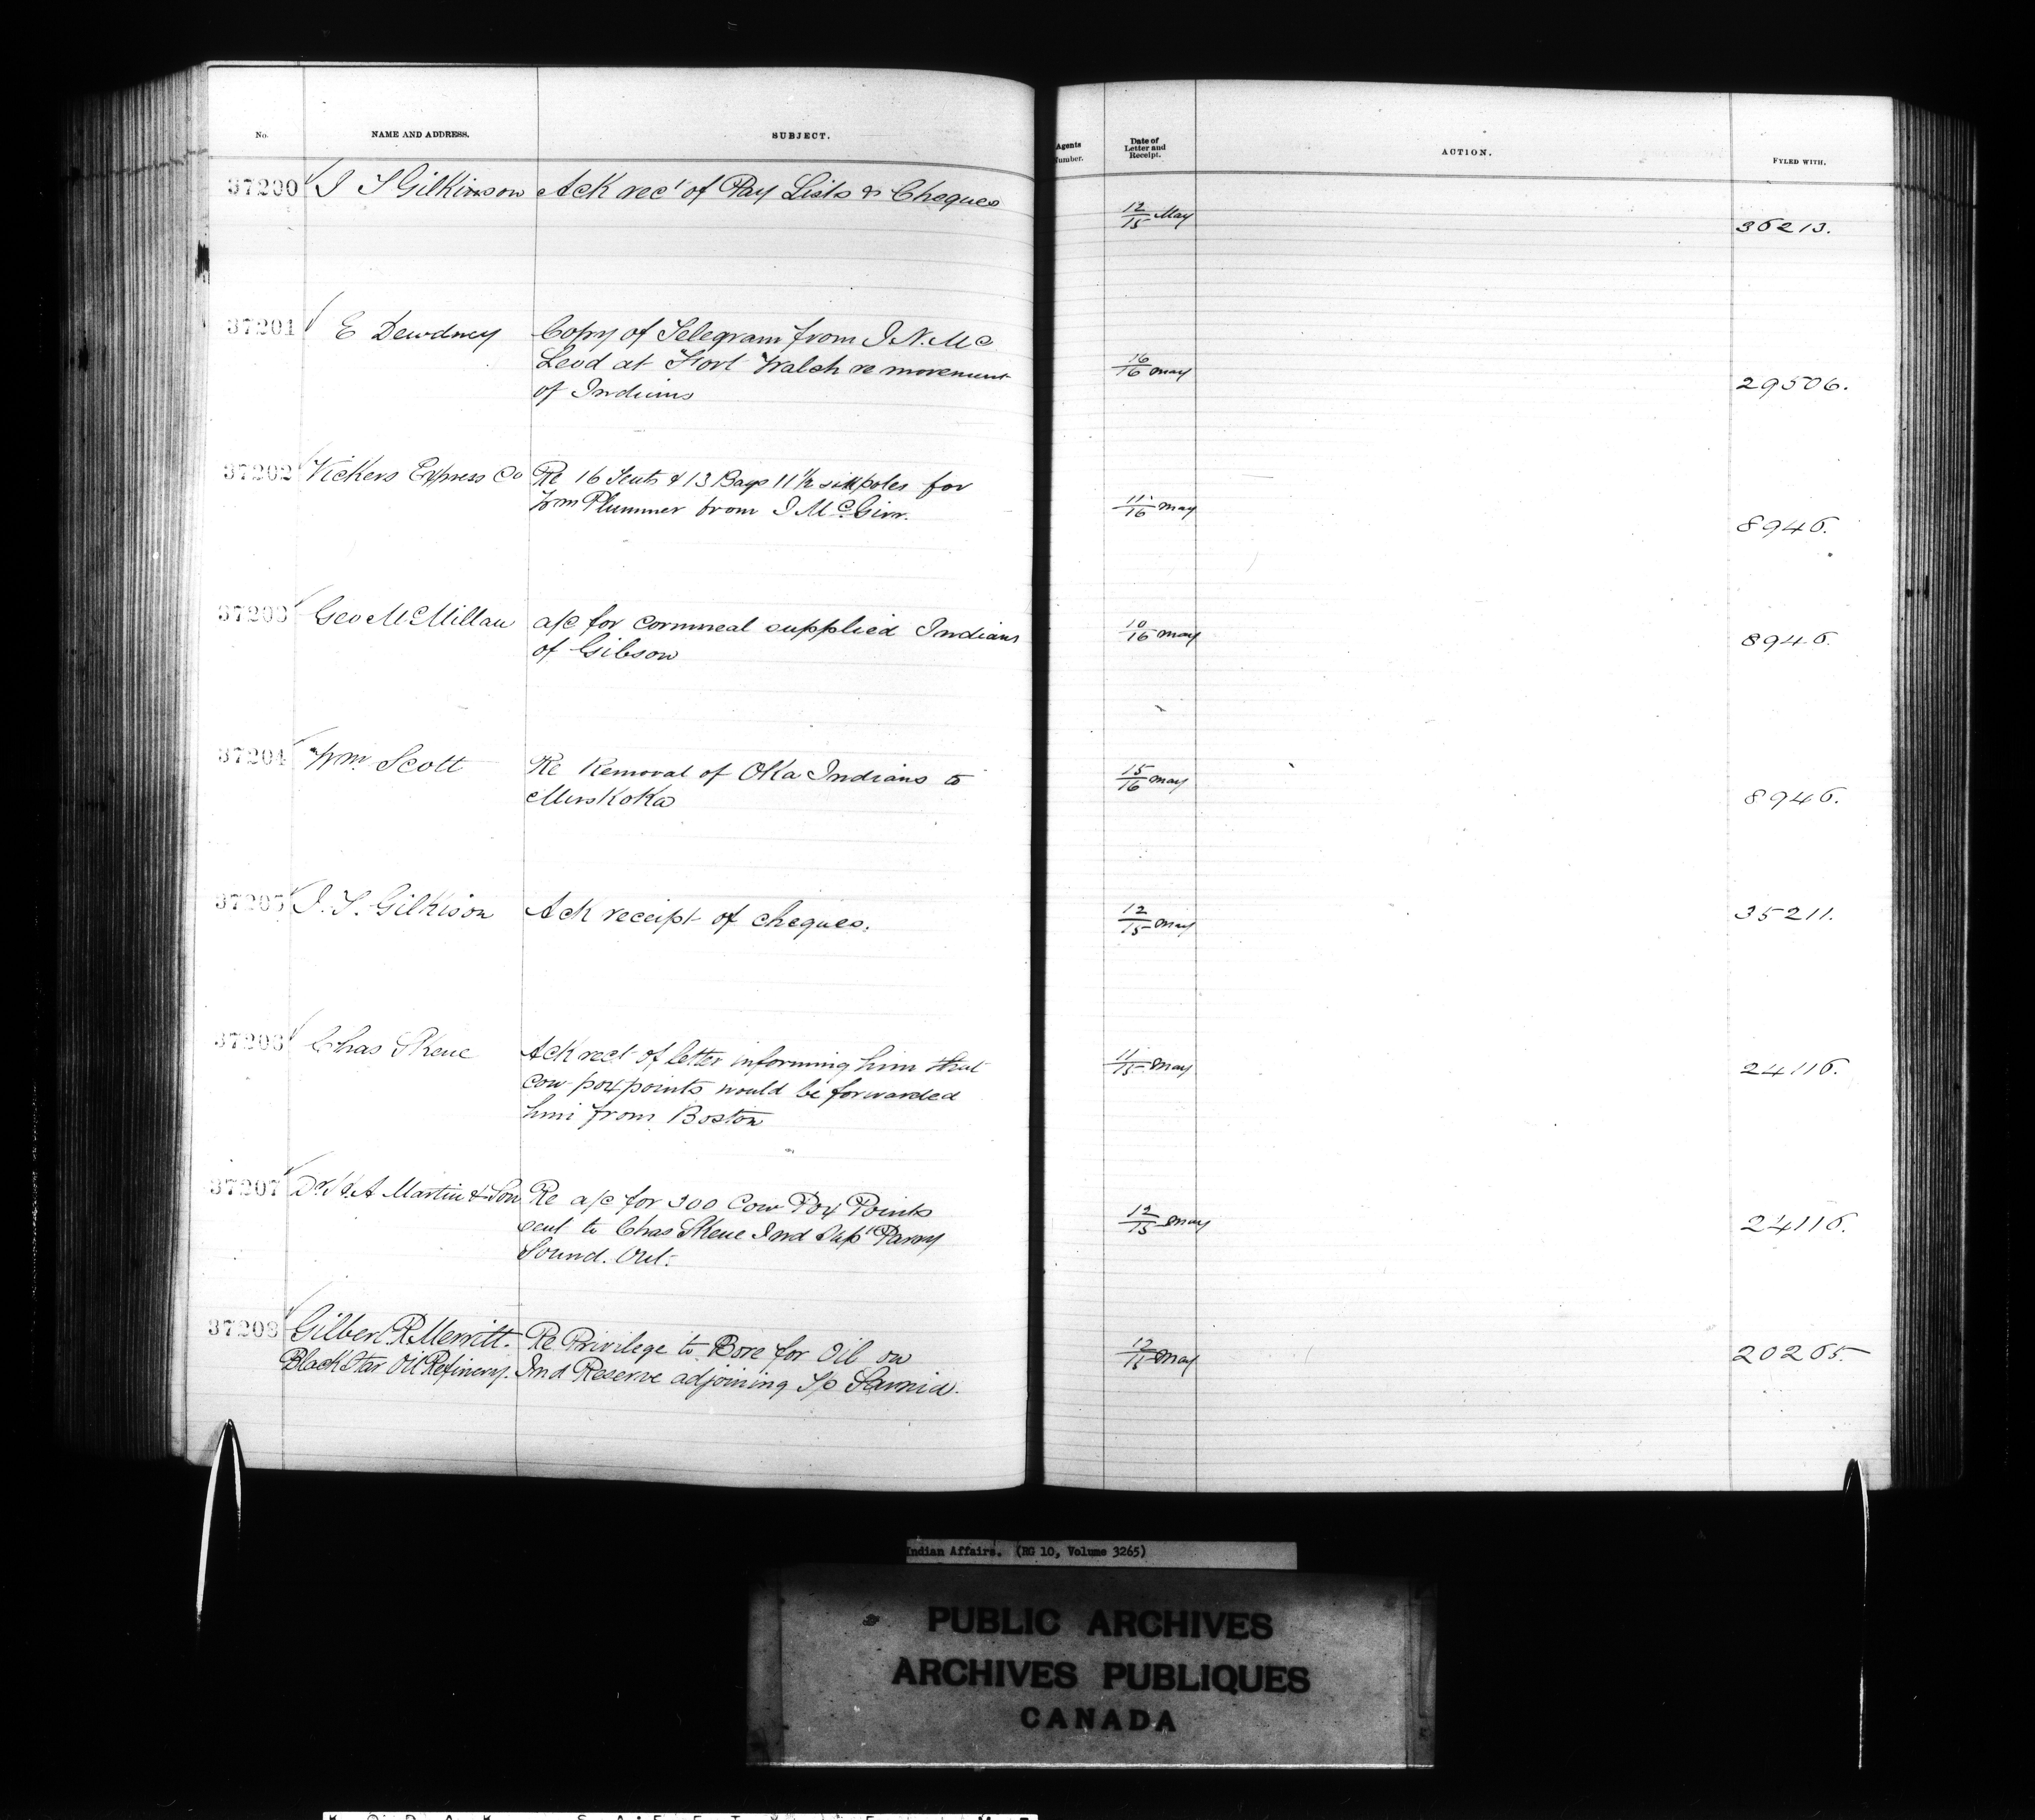 No. NAME AND ADDRESS. SUBJECT. Agents Number. Date of Letter and Receipt. ACTION. FYLED WITH.
37200 J T Gilkinson Ack rec't of Pay Lists & Cheques 12/15 May 36213.
37201 E Dewdney Copy of Telegram from J. N. Mc
Leod at Fort Walsh re movement 16/16 May
of Indians 29506.
37202 Vickers Express Co Re 16 Tents & 13 Bags 11½ poles for
Wm Plummer from J McGirr. 11/16 May 8946.
37203 Geo McMillan a/c for cornmeal supplied Indians 10/16 May
of Gibson 8946.
37204 Wm Scott Re Removal of Oka Indians to 15/16 May
Muskoka 8946.
37205 J. T. Gilkison Ack receipt of cheques. 12/15 May 35211.
37206 Chas Skene Ack rect of letter informing him that 11/15 May
cow pox points would be forwarded 24116.
him from Boston
37207 Dr H A Martin & Son Re a/c for 300 Cow Pox Points
sent to Chas Skene Ind Sup't Parry 12/15 May 24116.
Sound. Ont.
37208 Gilbert R Merritt. Re Privilege to Bore for Oil on 12/15 May 20265.
Black Star Oil Refinery. Ind Reserve adjoining T/p Sarnia.
Indian Affairs. (RG 10, Volume 3265)
PUBLIC ARCHIVES
ARCHIVES PUBLIQUES
CANADA